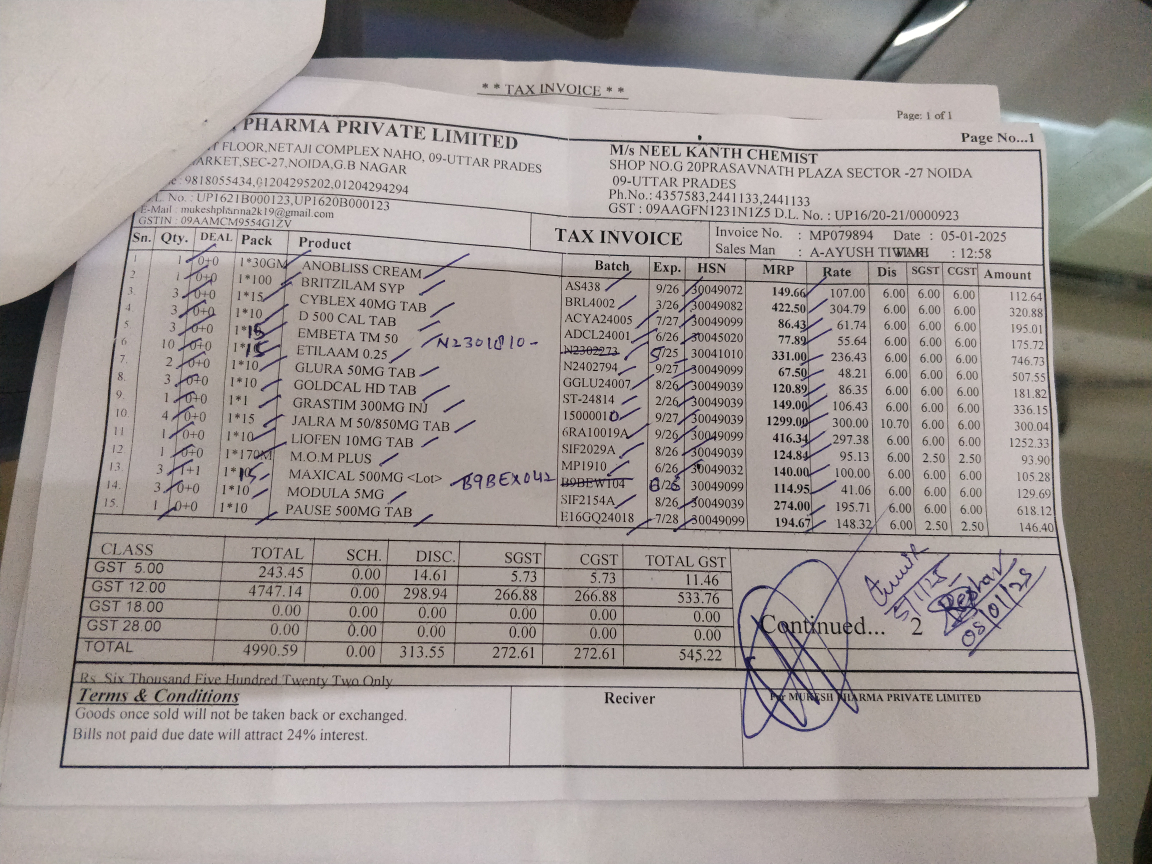 ** TAX INVOICE **
Page: 1 of 1
PHARMA PRIVATE LIMITED
FLOOR,NETAJI COMPLEX NAHO, 09-UTTAR PRADES
MARKET,SEC-27,NOIDA,G.B NAGAR
: 9818055434,01204295202,01204294294
D.L. No. : UP1621B000123,UP1620B000123
E-Mail : mukeshpharma2k19@gmail.com
GSTIN : 09AAMCM9554G1ZV
Page No...1
M/s NEEL KANTH CHEMIST
SHOP NO.G 20PRASAVNATH PLAZA SECTOR -27 NOIDA
09-UTTAR PRADES
Ph.No.: 4357583,2441133,2441133
GST : 09AAGFN1231N1Z5 D.L. No. : UP16/20-21/0000923
TAX INVOICE
Invoice No. : MP079894 Date : 05-01-2025
Sales Man : A-AYUSH : 12:58
Sn. Qty. DEAL Pack Product Batch Exp. HSN MRP Rate Dis SGST CGST Amount
1 1 0+0 1*30GM ANOBLISS CREAM AS438 9/26 30049072 149.66 107.00 6.00 6.00 6.00 112.64
2. 1 0+0 1*100 BRITZILAM SYP BRL4002 3/26 30049082 422.50 304.79 6.00 6.00 6.00 320.88
3. 3 0+0 1*15 CYBLEX 40MG TAB ACYA24005 7/27 30049099 86.43 61.74 6.00 6.00 6.00 195.01
4. 3 0+0 1*10 D 500 CAL TAB ADCL24001 6/26 30045020 77.89 55.64 6.00 6.00 6.00 175.72
5 3 0+0 1*15 EMBETA TM 50 N2301810- N2302273 5/25 30041010 331.00 236.43 6.00 6.00 6.00 746.73
6 10 0+0 1*15 ETILAAM 0.25 N2402794 9/27 30049099 67.50 48.21 6.00 6.00 6.00 507.55
7. 2 0+0 1*10 GLURA 50MG TAB GGLU24007 8/26 30049039 120.89 86.35 6.00 6.00 6.00 181.82
8. 3 0+0 1*10 GOLDCAL HD TAB ST-24814 2/26 30049039 149.00 106.43 6.00 6.00 6.00 336.15
9. 1 0+0 1*1 GRASTIM 300MG INJ 15000010 9/27 30049039 1299.00 300.00 10.70 6.00 6.00 300.04
10. 4 0+0 1*15 JALRA M 50/850MG TAB 6RA10019A 9/26 30049099 416.34 297.38 6.00 6.00 6.00 1252.33
11 1 0+0 1*10 LIOFEN 10MG TAB SIF2029A 8/26 30049039 124.84 95.13 6.00 2.50 2.50 93.90
12. 1 0+0 1*170M M.O.M PLUS MP1910 6/26 30049032 140.00 100.00 6.00 6.00 6.00 105.28
13. 3 1+1 1*15 MAXICAL 500MG <Lot> B9BEX042 B9BEW104 6/26 30049099 114.95 41.06 6.00 6.00 6.00 129.69
14. 3 0+0 1*10 MODULA 5MG SIF2154A 8/26 30049039 274.00 195.71 6.00 6.00 6.00 618.12
15. 1 0+0 1*10 PAUSE 500MG TAB E16GQ24018 7/28 30049099 194.67 148.32 6.00 2.50 2.50 146.40
CLASS TOTAL SCH. DISC. SGST CGST TOTAL GST
GST 5.00 243.45 0.00 14.61 5.73 5.73 11.46
GST 12.00 4747.14 0.00 298.94 266.88 266.88 533.76
GST 18.00 0.00 0.00 0.00 0.00 0.00 0.00
GST 28.00 0.00 0.00 0.00 0.00 0.00 0.00
TOTAL 4990.59 0.00 313.55 272.61 272.61 545.22
5/1/25
05/01/25
Continued... 2
Rs. Six Thousand Five Hundred Twenty Two Only
Terms & Conditions
Goods once sold will not be taken back or exchanged.
Bills not paid due date will attract 24% interest.
Reciver
For MUKESH PHARMA PRIVATE LIMITED